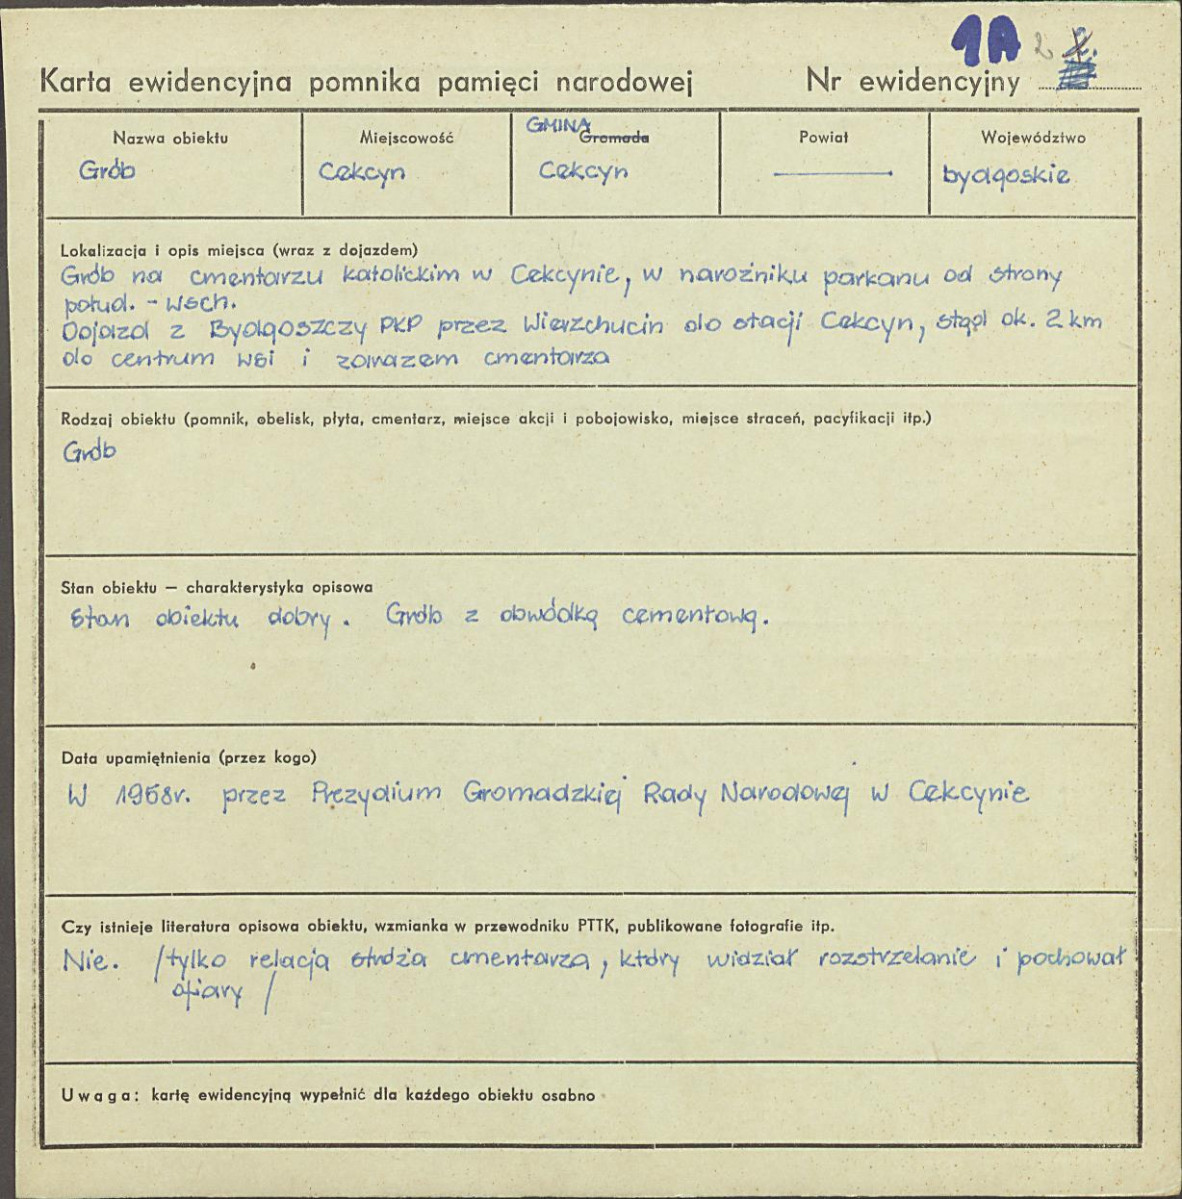 1A 2
Karta ewidencyjna pomnika pamięci narodowej Nr ewidencyjny
Nazwa obiektu Miejscowość GMINA Gromada Powiat Województwo
Grób Cekcyn Cekcyn — bydgoskie
Lokalizacja i opis miejsca (wraz z dojazdem)
Grób na cmentarzu katolickim w Cekcynie, w narożniku parkanu od strony
połud. - wsch.
Dojazd z Bydgoszczy PKP przez Wierzchucin do stacji Cekcyn, stąd ok. 2 km
do centrum wsi i zarazem cmentarza
Rodzaj obiektu (pomnik, obelisk, płyta, cmentarz, miejsce akcji i pobojowisko, miejsce straceń, pacyfikacji itp.)
Grób
Stan obiektu — charakterystyka opisowa
Stan obiektu dobry. Grób z obwódką cementową.
Data upamiętnienia (przez kogo)
W 1968r. przez Prezydium Gromadzkiej Rady Narodowej w Cekcynie
Czy istnieje literatura opisowa obiektu, wzmianka w przewodniku PTTK, publikowane fotografie itp.
Nie. /tylko relacja stróża cmentarza, który widział rozstrzelanie i pochował
ofiary /
Uwaga: kartę ewidencyjną wypełnić dla każdego obiektu osobno